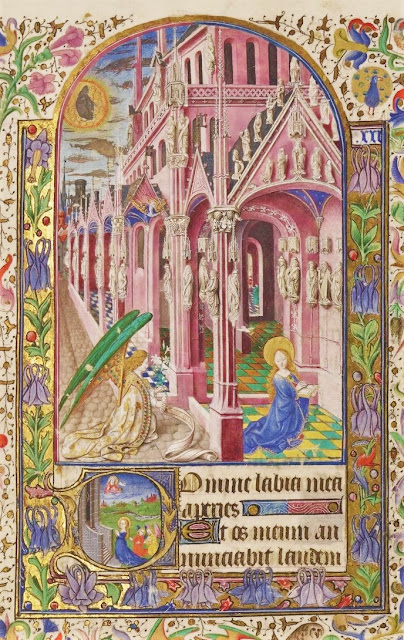 Domine labia mea
aperies
Et os meum an
nunciabit laudem